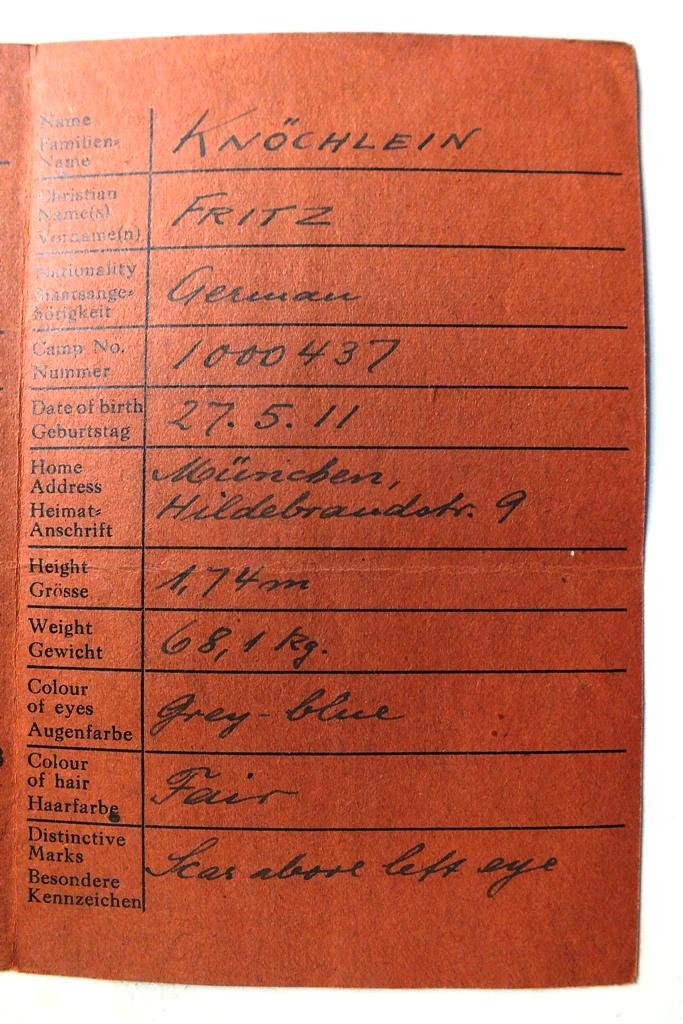 Name
Familien=
Name
KNÖCHLEIN
Christian
Name(s)
Vorname(n)
FRITZ
Nationality
Staatsange=
hörigkeit
German
Camp No.
Nummer
1000437
Date of birth
Geburtstag
27. 5. 11
Home
Address
Heimat=
Anschrift
München,
Hildebrandstr. 9
Height
Grösse
1,74 m
Weight
Gewicht
68,1 kg.
Colour
of eyes
Augenfarbe
grey-blue
Colour
of hair
Haarfarbe
Fair
Distinctive
Marks
Besondere
Kennzeichen
Scar above left eye